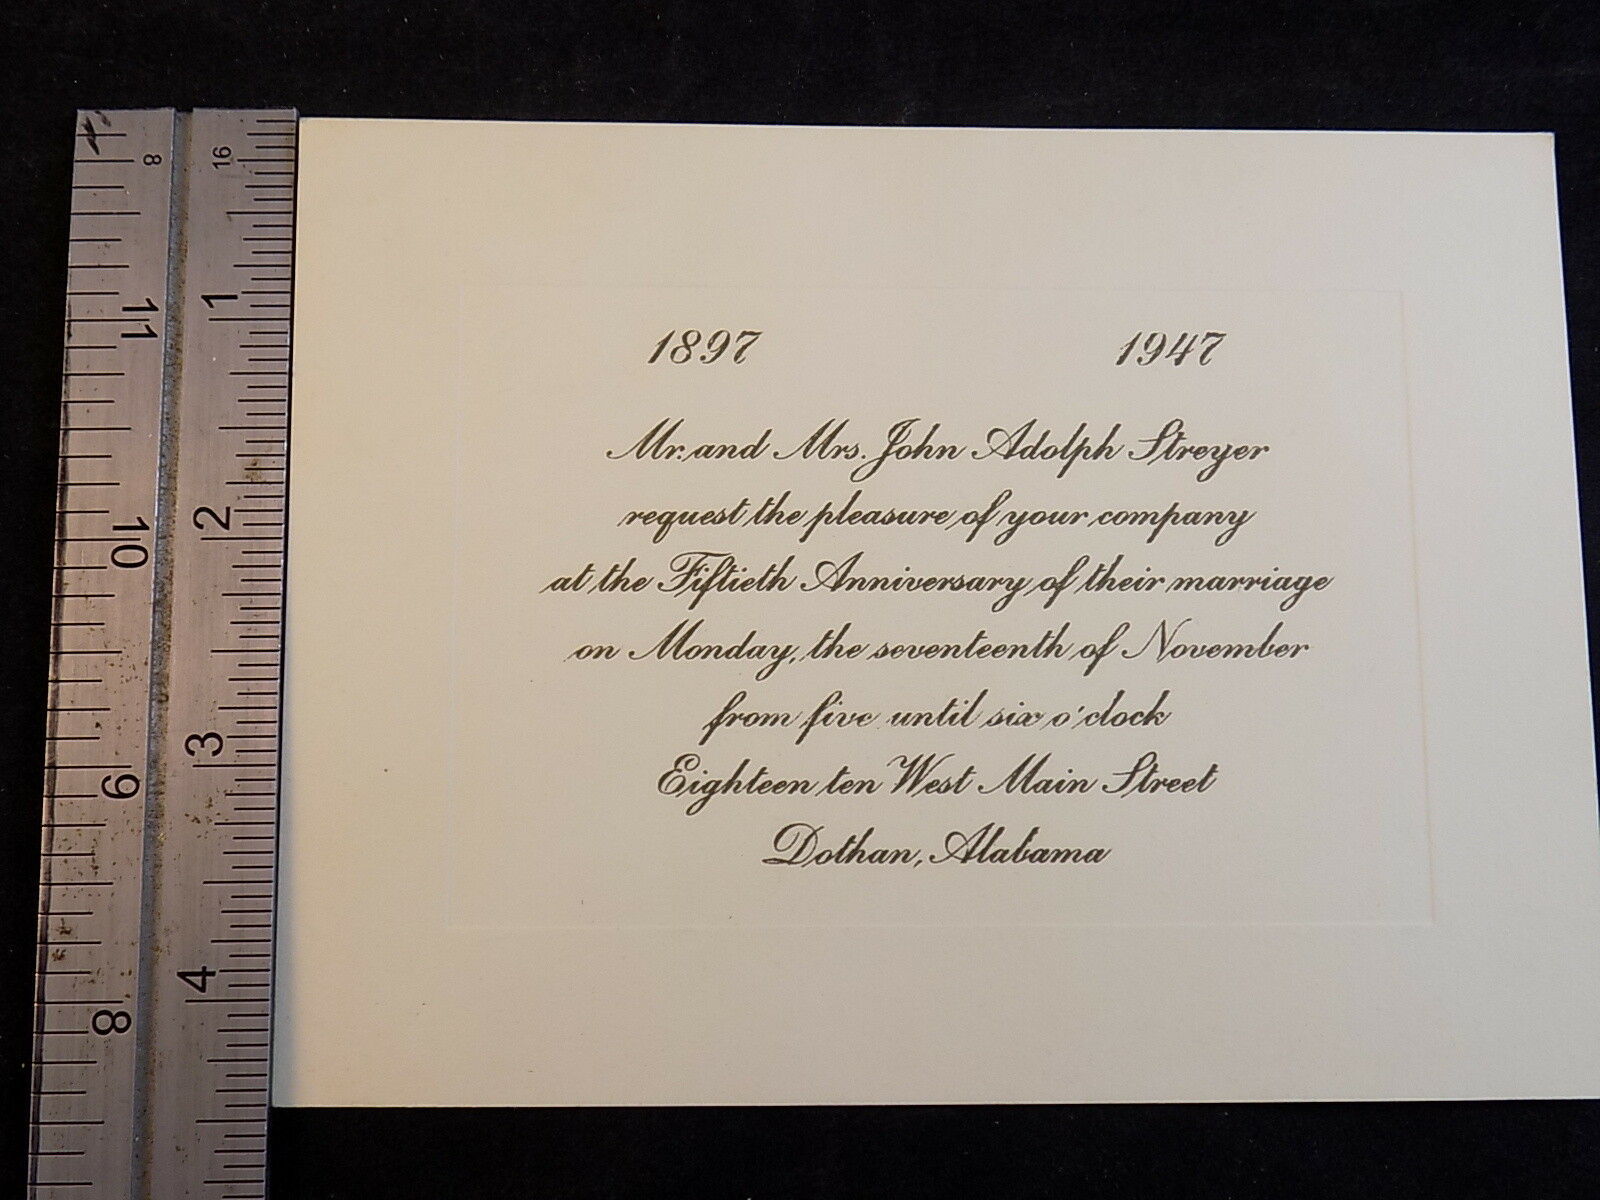 8
16
11
1
10
2
9
3
8
4
1897 1947
Mr. and Mrs. John Adolph Streyer
request the pleasure of your company
at the Fiftieth Anniversary of their marriage
on Monday, the seventeenth of November
from five until six o'clock
Eighteen ten West Main Street
Dothan, Alabama